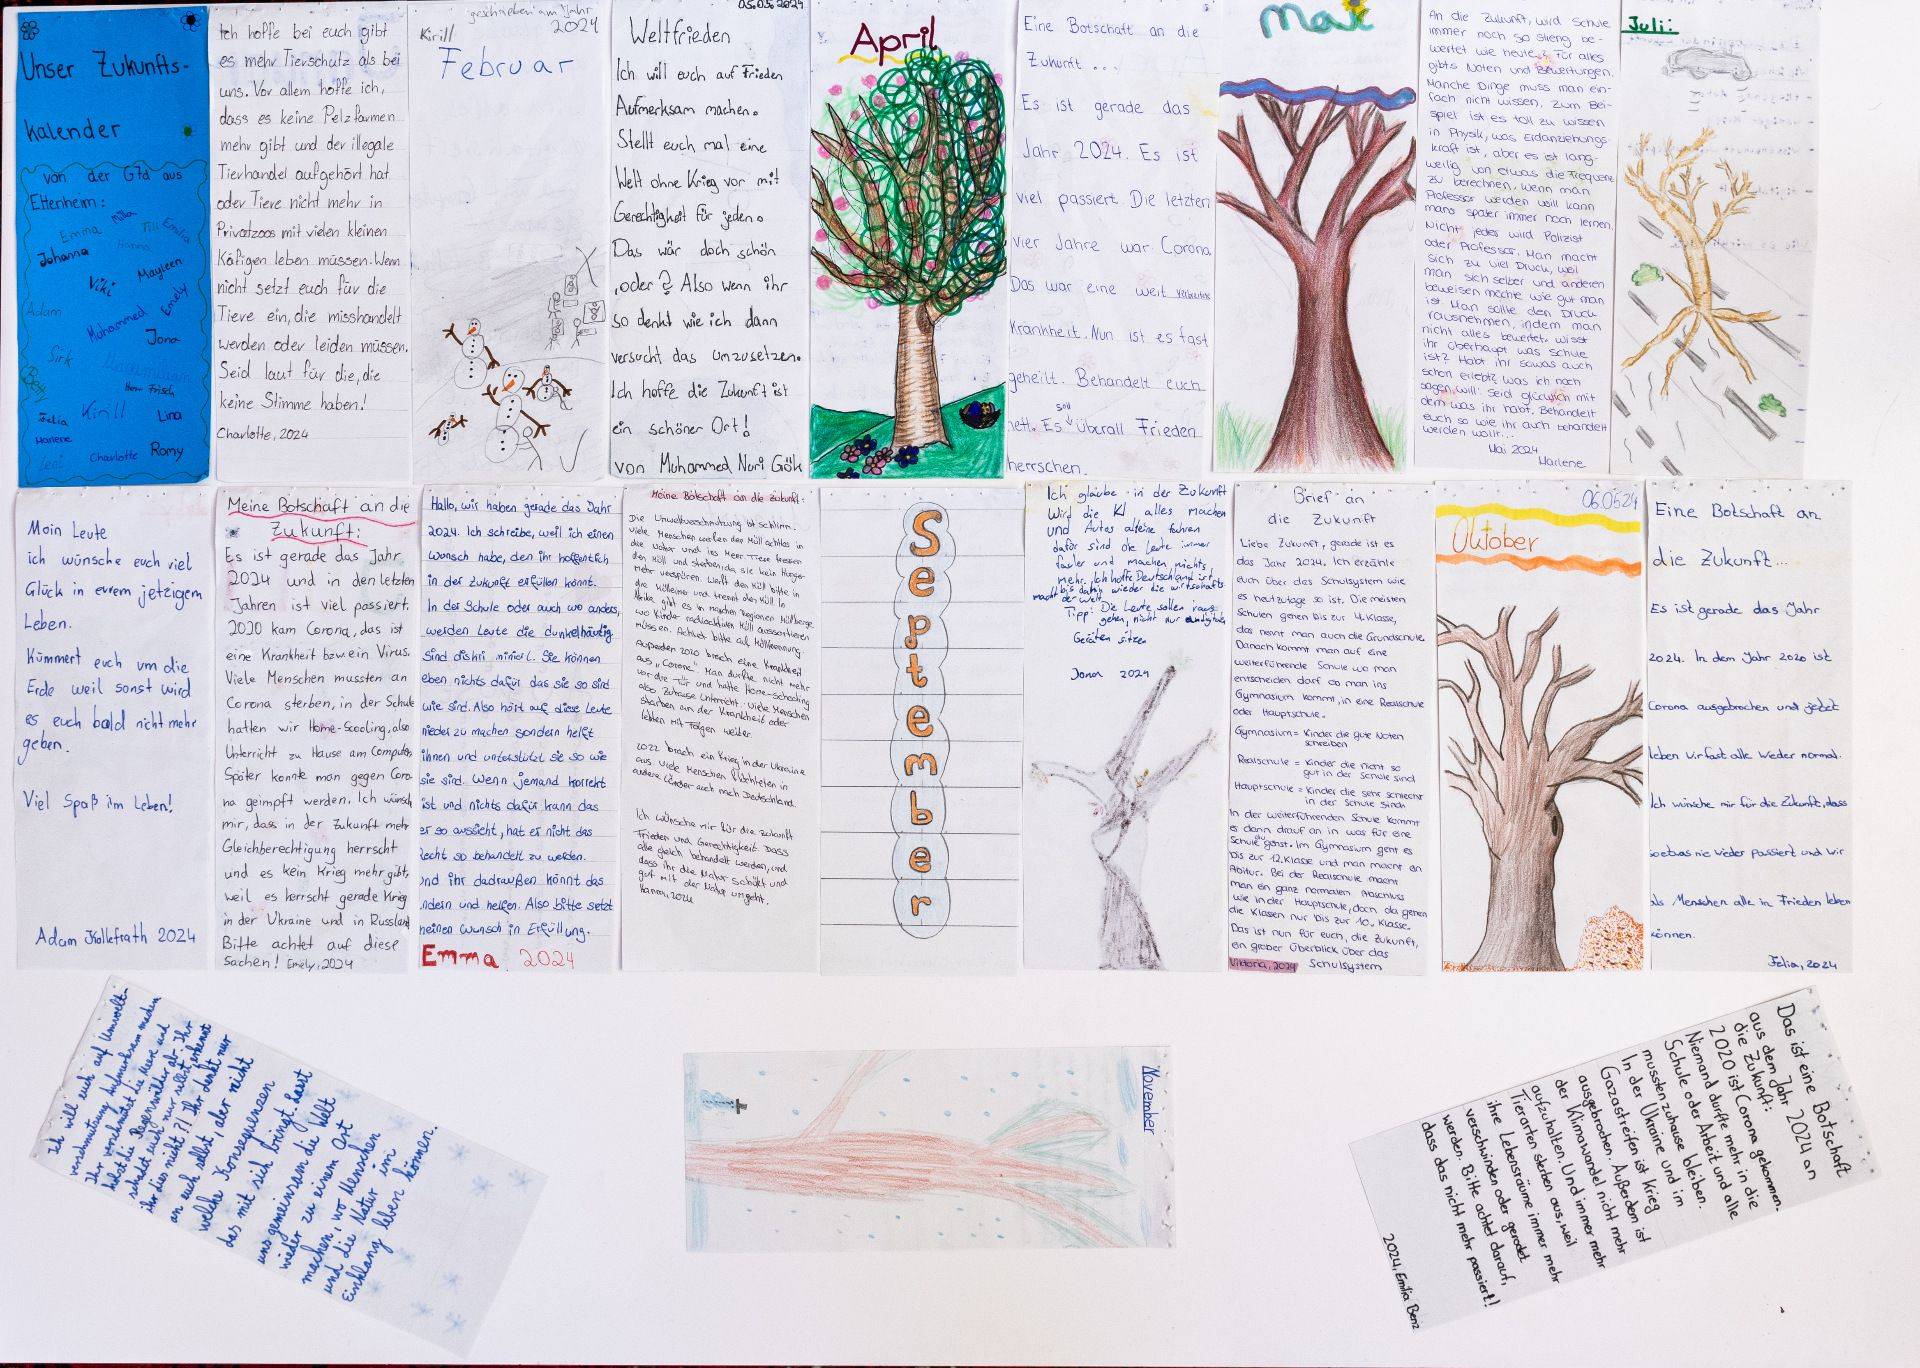 Unser Zukunfts-
kalender
von der G7d aus
Ettenheim:
Milla
Emma
Till
Emilia
Johanna
Hanna
Viki
Mayleen
Adam
Muhammed
Emely
Jona
Sirk
Herr Frisch
Felia
Kirill
Lina
Marlene
Leni
Charlotte
Romy
Ich hoffe bei euch gibt
es mehr Tierschutz als bei
uns. Vor allem hoffe ich,
dass es keine Pelzfarmen
mehr gibt und der illegale
Tierhandel aufgehört hat
oder Tiere nicht mehr in
Privatzoos mit vielen kleinen
Käfigen leben müssen. Wenn
nicht setzt euch für die
Tiere ein, die misshandelt
werden oder leiden müssen.
Seid laut für die, die
keine Stimme haben!
Charlotte, 2024
geschrieben am Jahr
2024
Kirill
Februar
05.05.2024
Weltfrieden
Ich will euch auf Frieden
Aufmerksam machen.
Stellt euch mal eine
Welt ohne Krieg vor mit
Gerechtigkeit für jeden.
Das wär doch schön
,oder? Also wenn ihr
so denkt wie ich dann
versucht das umzusetzen.
Ich hoffe die Zukunft ist
ein schöner Ort!
von Muhammed Nuri Gök
April
Eine Botschaft an die
Zukunft...
Es ist gerade das
Jahr 2024. Es ist
viel passiert. Die letzten
vier Jahre war Corona
Das war eine weit verbreitete
Krankheit. Nun ist es fast
geheilt. Behandelt euch
soll
nett. Es Überall Frieden
herrschen.
Mai
An die Zukunft, wird Schule
immer noch so streng be-
wertet wie heute? Für alles
gibts Noten und Bewertungen.
Manche Dinge muss man ein-
fach nicht wissen. Zum Bei-
spiel ist es toll zu wissen
in Physik, was Erdanziehungs-
kraft ist, aber es ist lang-
weilig von etwas die Frequenz
zu berechnen, wenn man
Professor werden will kann
mans später immer noch lernen.
Nicht jeder wird Polizist
oder Professor. Man macht
sich zu viel Druck, weil
man sich selber und anderen
beweisen möchte wie gut man
ist. Man sollte den Druck
rausnehmen, indem man
nicht alles bewertet. Wisst
ihr überhaupt was Schule
ist? Habt ihr sowas auch
schon erlebt? Was ich noch
sagen will: Seid glücklich mit
dem was ihr habt. Behandelt
euch so wie ihr auch behandelt
werden wollt...
Mai 2024
Marlene
Juli:
Moin Leute
ich wünsche euch viel
Glück in eurem jetzigem
Leben.
Kümmert euch um die
Erde weil sonst wird
es euch bald nicht mehr
geben.
Viel Spaß im Leben!
Adam Kollefrath 2024
Meine Botschaft an die
Zukunft:
Es ist gerade das Jahr
2024 und in den letzten
Jahren ist viel passiert.
2020 kam Corona, das ist
eine Krankheit bzw. ein Virus.
Viele Menschen mussten an
Corona sterben, in der Schule
hatten wir Home-Scooling, also
Unterricht zu Hause am Computer.
Später konnte man gegen Coro-
na geimpft werden. Ich wünsch
mir, dass in der Zukunft mehr
Gleichberechtigung herrscht
und es kein Krieg mehr gibt,
weil es herrscht gerade Krieg
in der Ukraine und in Russland
Bitte achtet auf diese
Sachen! Emely, 2024
Hallo, wir haben gerade das Jahr
2024. Ich schreibe, weil ich einen
Wunsch habe, den ihr hoffentlich
in der Zukunft erfüllen könnt.
In der Schule oder auch wo anders,
werden Leute die dunkelhäutig
sind diskriminiert. Sie können
eben nichts dafür das sie so sind
wie sind. Also hört auf diese Leute
nieder zu machen sondern helft
ihnen und unterstützt sie so wie
sie sind. Wenn jemand korrekt
ist und nichts dafür kann das
er so aussieht, hat er nicht das
Recht so behandelt zu werden.
und ihr dadraußen könnt das
ändern und helfen. Also bitte setzt
meinen Wunsch in Erfüllung.
Emma 2024
Meine Botschaft an die Zukunft:
Die Umweltverschmutzung ist schlimm.
Viele Menschen werfen den Müll achtlos in
die Natur und ins Meer. Tiere fressen
den Müll und sterben, da sie kein Hunger
mehr verspüren. Werft den Müll bitte in
die Mülleimer und trennt den Müll. In
Afrika gibt es in manchen Regionen Müllberge
wo Kinder radioaktiven Müll aussortieren
müssen. Achtet bitte auf Mülltrennung
Außerdem 2020 brach eine Krankheit
aus „Corona". Man durfte nicht mehr
vor die Tür und hatte Home-Schooling
also Zuhause Unterricht. Viele Menschen
starben an der Krankheit oder
lebten mit Folgen weiter.
2022 brach ein Krieg in der Ukraine
aus. Viele Menschen flüchteten in
andere Länder auch nach Deutschland.
Ich wünsche mir für die Zukunft
Frieden und Gerechtigkeit. Dass
alle gleich behandelt werden, und
dass ihr die Natur schützt und
gut mit der Natur umgeht.
Hanna, 2024
September
Ich glaube in der Zukunft
Wird die KI alles machen
und Autos alleine fahren
dafür sind die Leute immer
fauler und machen nichts
mehr. Ich hoffe Deutschland ist
bis dahin wieder die wirtschafts
macht der Welt
Tipp: Die Leute sollen raus
gehen, nicht nur an digitalen
Geräten sitzen
Jona 2024
Brief an
die Zukunft
Liebe Zukunft, gerade ist es
das Jahr 2024. Ich erzähle
euch über das Schulsystem wie
es heutzutage so ist. Die meisten
Schulen gehen bis zur 4. Klasse,
das nennt man auch die Grundschule
Danach kommt man auf eine
weiterführende Schule wo man
entscheiden darf ob man ins
Gymnasium kommt, in eine Realschule
oder Hauptschule.
Gymnasium = Kinder die gute Noten
schreiben
Realschule = Kinder die nicht so
gut in der Schule sind
Hauptschule = Kinder die sehr schlecht
in der Schule sind
In der weiterführenden Schule kommt
es dann drauf an in was für eine
du
Schule gehst. Im Gymnasium geht es
bis zur 12. Klasse und man macht ein
Abitur. Bei der Realschule macht
man ein ganz normalen Abschluss
wie in der Hauptschule, doch da gehen
die Klassen nur bis zur 10. Klasse.
Das ist nun für euch, die Zukunft,
ein grober Überblick über das
Viktoria, 2024 Schulsystem
06.05.24
Oktober
Eine Botschaft an
die Zukunft...
Es ist gerade das Jahr
2024. In dem Jahr 2020 ist
Corona ausgebrochen und jetzt
leben wir fast alle wieder normal.
Ich wünsche mir für die Zukunft, dass
soetwas nie wieder passiert und wir
als Menschen alle in Frieden leben
können.
Felia, 2024
Ich will euch auf Umwelt-
verschmutzung Aufmerksam machen
Ihr verschmutzt die Meere und
holzt die Regenwälder ab. Ihr
schadet euch nur selbst, erkennt
ihr dies nicht?! Ihr denkt nur
an euch selbst, aber nicht
welche Konsequenzen
das mit sich bringt. Lasst
uns gemeinsam die Welt
wieder zu einem Ort
machen, wo Menschen
und die Natur im
Einklang leben können.
November
Das ist eine Botschaft
aus dem Jahr 2024 an
die Zukunft:
2020 ist Corona gekommen.
Niemand durfte mehr in die
Schule oder Arbeit und alle
mussten zuhause bleiben.
In der Ukraine und im
Gazastreifen ist Krieg
ausgebrochen. Außerdem ist
der Klimawandel nicht mehr
aufzuhalten. Und immer mehr
Tierarten sterben aus, weil
ihre Lebensräume immer mehr
verschwinden oder gerodet
werden. Bitte achtet darauf,
dass das nicht mehr passiert!
2024, Emilia Benz